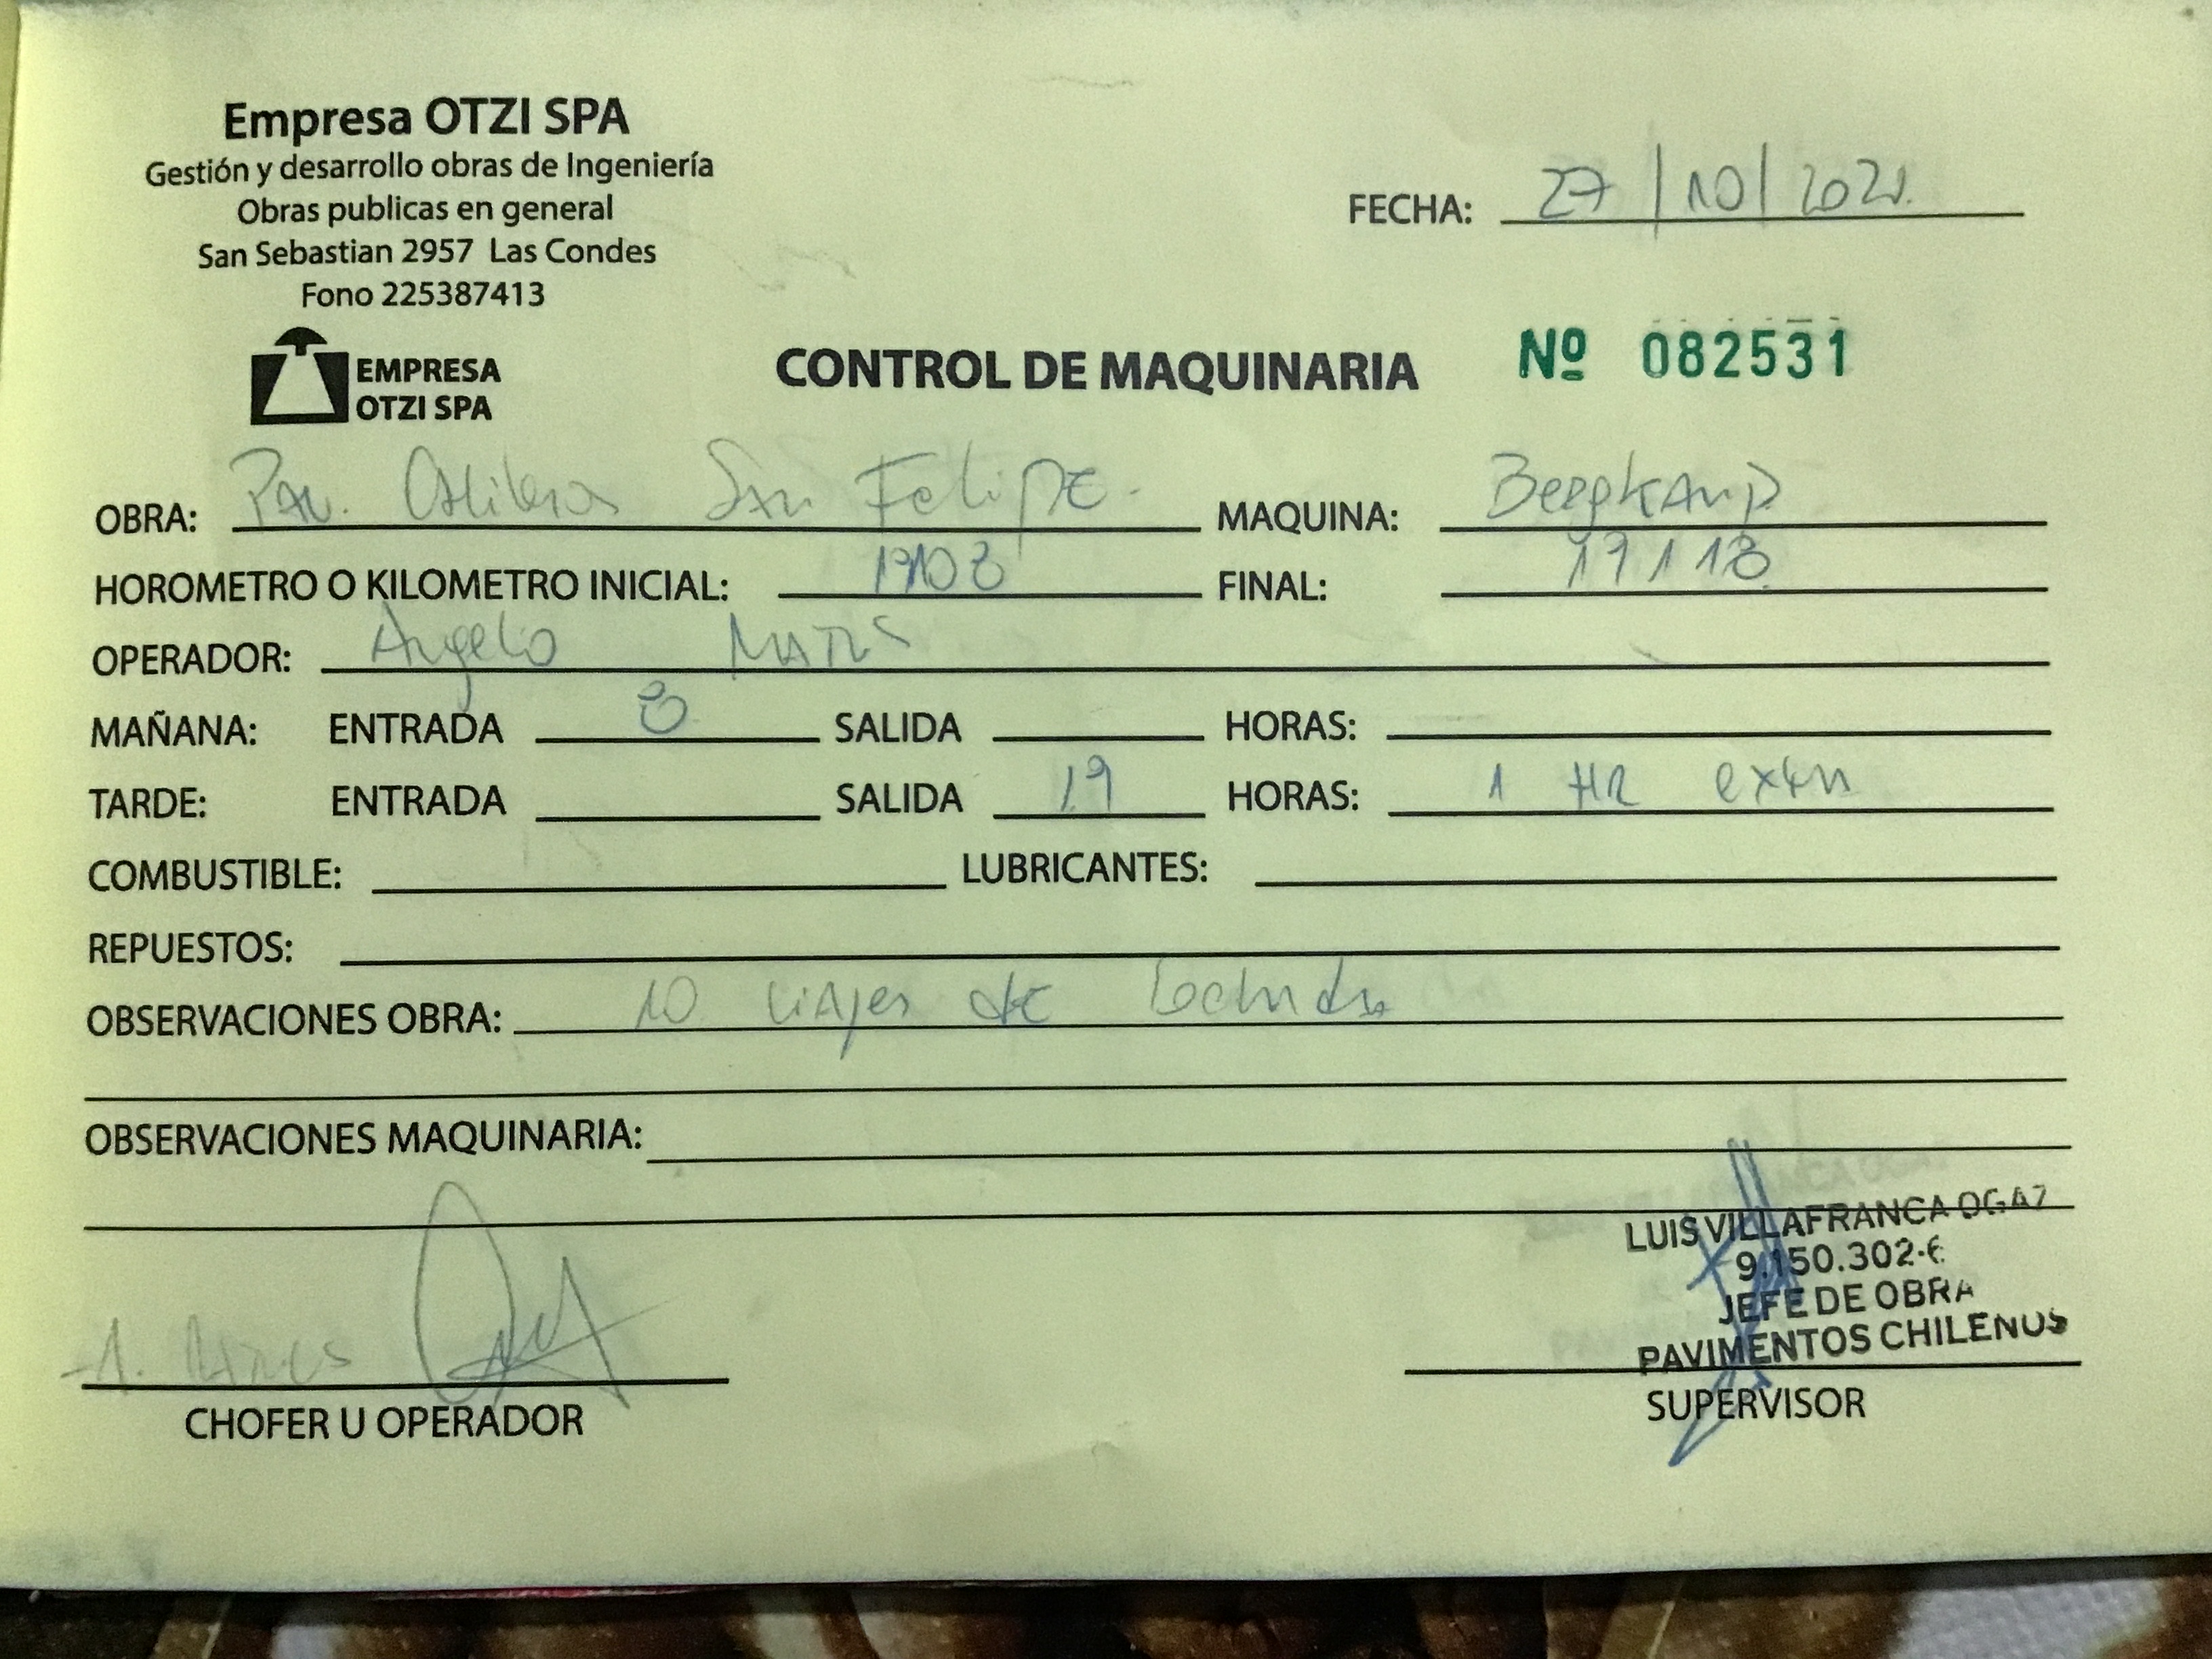 Empresa OTZI SPA
Gestión y desarrollo obras de Ingeniería
Obras publicas en general
San Sebastian 2957 Las Condes
Fono 225387413
EMPRESA
OTZI SPA
FECHA: 27/10/2021.
CONTROL DE MAQUINARIA Nº 082531
OBRA: Pav. San Felipe. MAQUINA: Bergkamp
HOROMETRO O KILOMETRO INICIAL: 19108 FINAL: 19118
OPERADOR: Angelo
MAÑANA: ENTRADA 8 SALIDA HORAS:
TARDE: ENTRADA SALIDA 19 HORAS: 1 HR extra
COMBUSTIBLE: LUBRICANTES:
REPUESTOS:
OBSERVACIONES OBRA: 10 viajes de lechada
OBSERVACIONES MAQUINARIA:
LUIS VILLAFRANCA OGAZ
9.150.302-6
JEFE DE OBRA
PAVIMENTOS CHILENOS
CHOFER U OPERADOR
SUPERVISOR